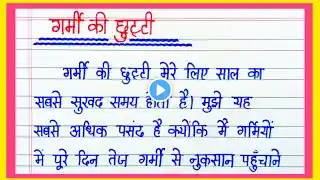 गर्मी की छुट्टी
गर्मी की छुट्टी मेरे लिए साल का
सबसे सुखद समय होता है। मुझे यह
सबसे अधिक पसंद है क्योंकि मैं गर्मियों
में पूरे दिन तेज गर्मी से नुकसान पहुँचाने